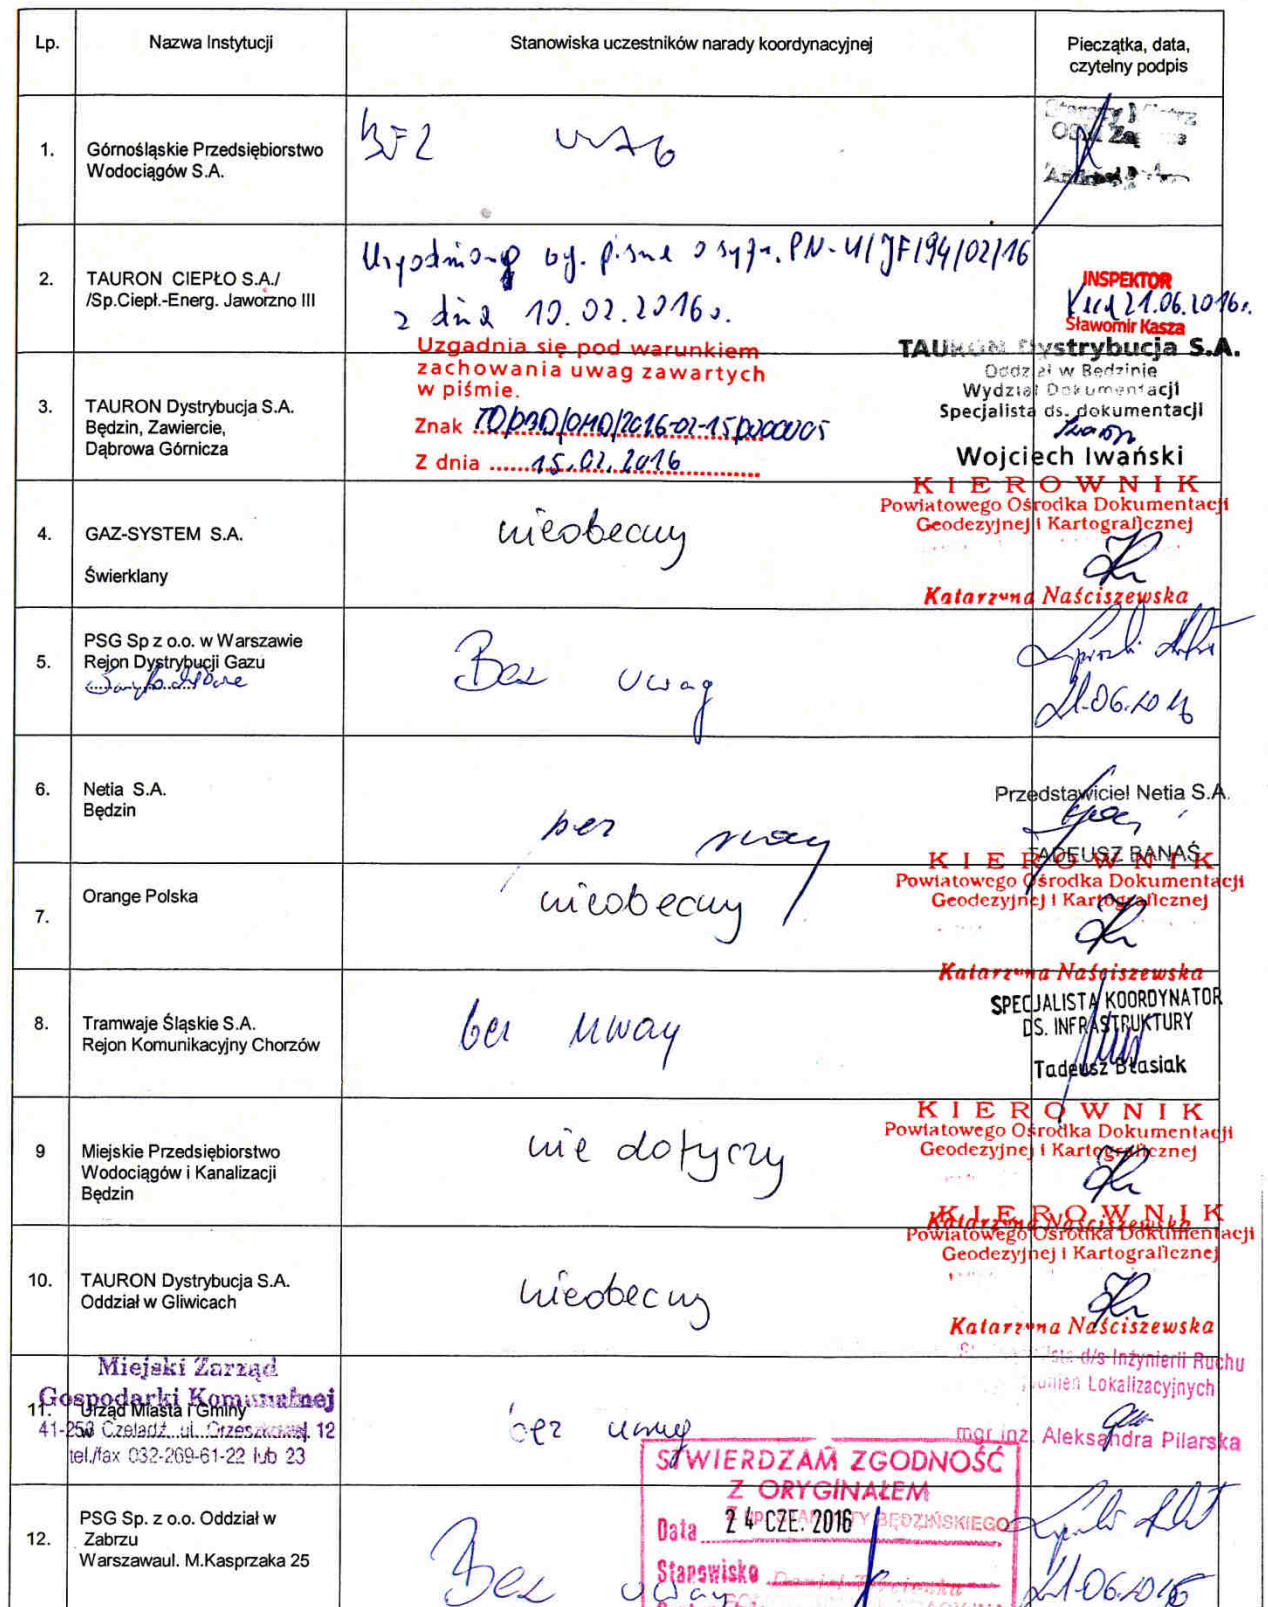 Lp.
Nazwa Instytucji
Stanowiska uczestników narady koordynacyjnej
Pieczątka, data,
czytelny podpis
1.
Górnośląskie Przedsiębiorstwo
Wodociągów S.A.
2.
TAURON CIEPŁO S.A./
/Sp.Ciepł.-Energ. Jaworzno III
z dnia 10.02.2016r.
INSPEKTOR
21.06.2016r.
Sławomir Kasza
3.
TAURON Dystrybucja S.A.
Będzin, Zawiercie,
Dąbrowa Górnicza
Uzgadnia się pod warunkiem
zachowania uwag zawartych
w piśmie.
Znak
Z dnia 15.02.2016
TAURON Dystrybucja S.A.
Oddział w Będzinie
Wydział Dokumentacji
Specjalista ds. dokumentacji
Wojciech Iwański
4.
GAZ-SYSTEM S.A.
Świerklany
nieobecny
KIEROWNIK
Powiatowego Ośrodka Dokumentacji
Geodezyjnej i Kartograficznej
Katarzyna Naściszewska
5.
PSG Sp z o.o. w Warszawie
Rejon Dystrybucji Gazu
Bez uwag
21.06.2016
6.
Netia S.A.
Będzin
bez uwag
Przedstawiciel Netia S.A.
TADEUSZ BANAŚ
7.
Orange Polska
nieobecny
KIEROWNIK
Powiatowego Ośrodka Dokumentacji
Geodezyjnej i Kartograficznej
Katarzyna Naściszewska
8.
Tramwaje Śląskie S.A.
Rejon Komunikacyjny Chorzów
bez uwag
SPECJALISTA KOORDYNATOR
DS. INFRASTRUKTURY
Tadeusz Błasiak
9
Miejskie Przedsiębiorstwo
Wodociągów i Kanalizacji
Będzin
nie dotyczy
KIEROWNIK
Powiatowego Ośrodka Dokumentacji
Geodezyjnej i Kartograficznej
Katarzyna Naściszewska
10.
TAURON Dystrybucja S.A.
Oddział w Gliwicach
nieobecny
KIEROWNIK
Powiatowego Ośrodka Dokumentacji
Geodezyjnej i Kartograficznej
Katarzyna Naściszewska
Miejski Zarząd
Gospodarki Komunalnej
11.
Urząd Miasta i Gminy
41-250 Czeladź ul. Orzeszkowej 12
tel./fax 032-269-61-22 lub 23
bez uwag
d/s Inżynierii Ruchu
Lokalizacyjnych
mgr inż. Aleksandra Pilarska
STWIERDZAM ZGODNOŚĆ
Z ORYGINAŁEM
Data 24 CZE. 2016
Stanowisko
12.
PSG Sp. z o.o. Oddział w
Zabrzu
Warszawaul. M.Kasprzaka 25
Bez uwag
21.06.2016